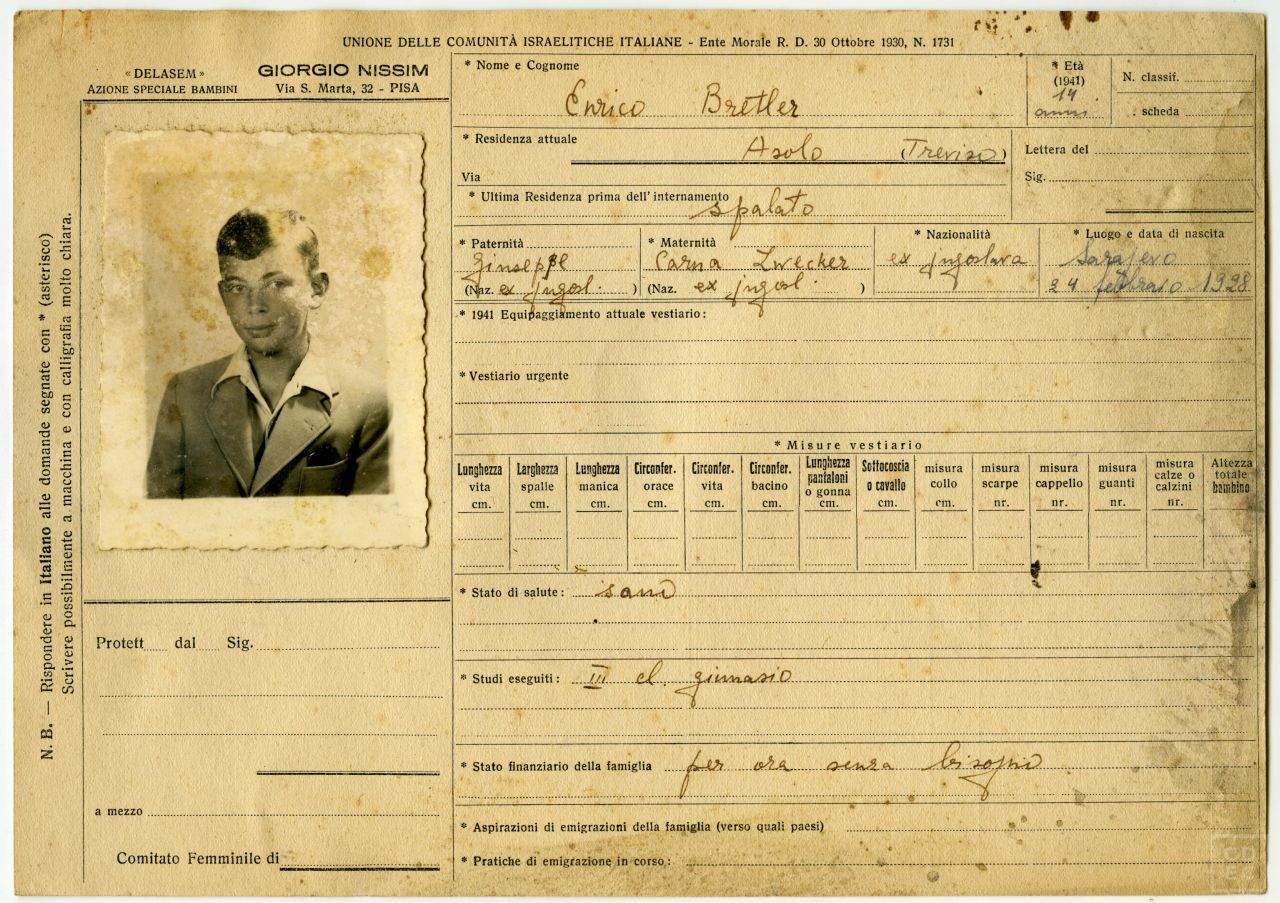 UNIONE DELLE COMUNITÀ ISRAELITICHE ITALIANE - Ente Morale R. D. 30 Ottobre 1930, N. 1731
« DELASEM »
AZIONE SPECIALE BAMBINI
GIORGIO NISSIM
Via S. Marta, 32 - PISA
N. B. — Rispondere in Italiano alle domande segnate con * (asterisco)
Scrivere possibilmente a macchina e con calligrafia molto chiara.
* Nome e Cognome
Enrico Bretler
* Età
(1941)
14
anni
N. classif.
scheda
* Residenza attuale
Asolo (Treviso)
Via
Lettera del
Sig.
* Ultima Residenza prima dell'internamento
Spalato
* Paternità
Giuseppe
(Naz. ex jugosl. )
* Maternità
Zwecker
(Naz. ex jugosl. )
* Nazionalità
ex jugoslava
* Luogo e data di nascita
Sarajevo
24 febbraio 1928
* 1941 Equipaggiamento attuale vestiario:
* Vestiario urgente
* Misure vestiario
Lunghezza vita cm.
Larghezza spalle cm.
Lunghezza manica cm.
Circonfer. orace cm.
Circonfer. vita cm.
Circonfer. bacino cm.
Lunghezza pantaloni o gonna cm.
Sottocoscia o cavallo cm.
misura collo cm.
misura scarpe nr.
misura cappello nr.
misura guanti nr.
misura calze o calzini nr.
Altezza totale bambino
* Stato di salute: sano
* Studi eseguiti: III cl. ginnasio
* Stato finanziario della famiglia per ora senza bisogno
* Aspirazioni di emigrazioni della famiglia (verso quali paesi)
* Pratiche di emigrazione in corso:
Protett dal Sig.
a mezzo
Comitato Femminile di